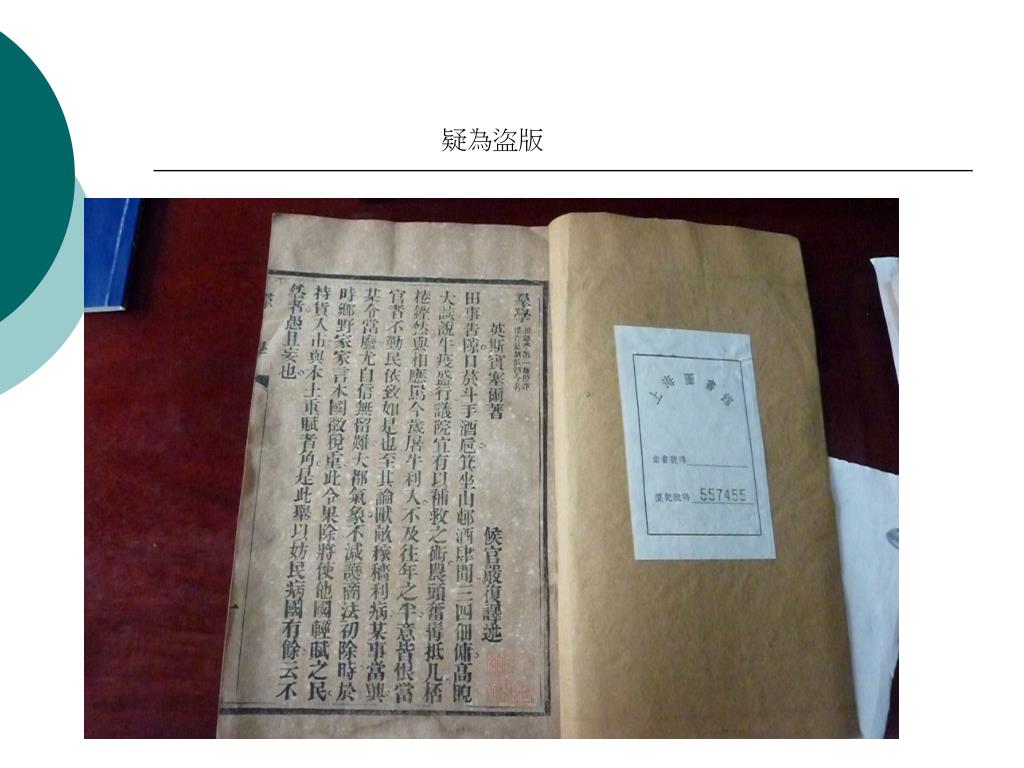 疑為盜版
羣學
英斯賓塞爾著
侯官嚴復譯述
田事告隙日於斗手酒巵箕坐山邨酒肆間三四佃傭高睨
大談說牛疫盛行議院宜有以補救之術農頭奮髯抵几桮
棬聲然與相應焉今歲居牛利人不及往年之半意皆恨當
官者不勤民依致如是也至其論畎畝稼穡利病某事當興
某令當廢尤自信無留難大都氣象不減護商法初除時於
時鄉野家家言本國徵稅重此令果除將使他國輕賦之民
持貨入市與本土重賦者角是此舉以妨民病國有餘云不
然者愚且妄也
上海圖書館
索書號碼
登記號碼 557455